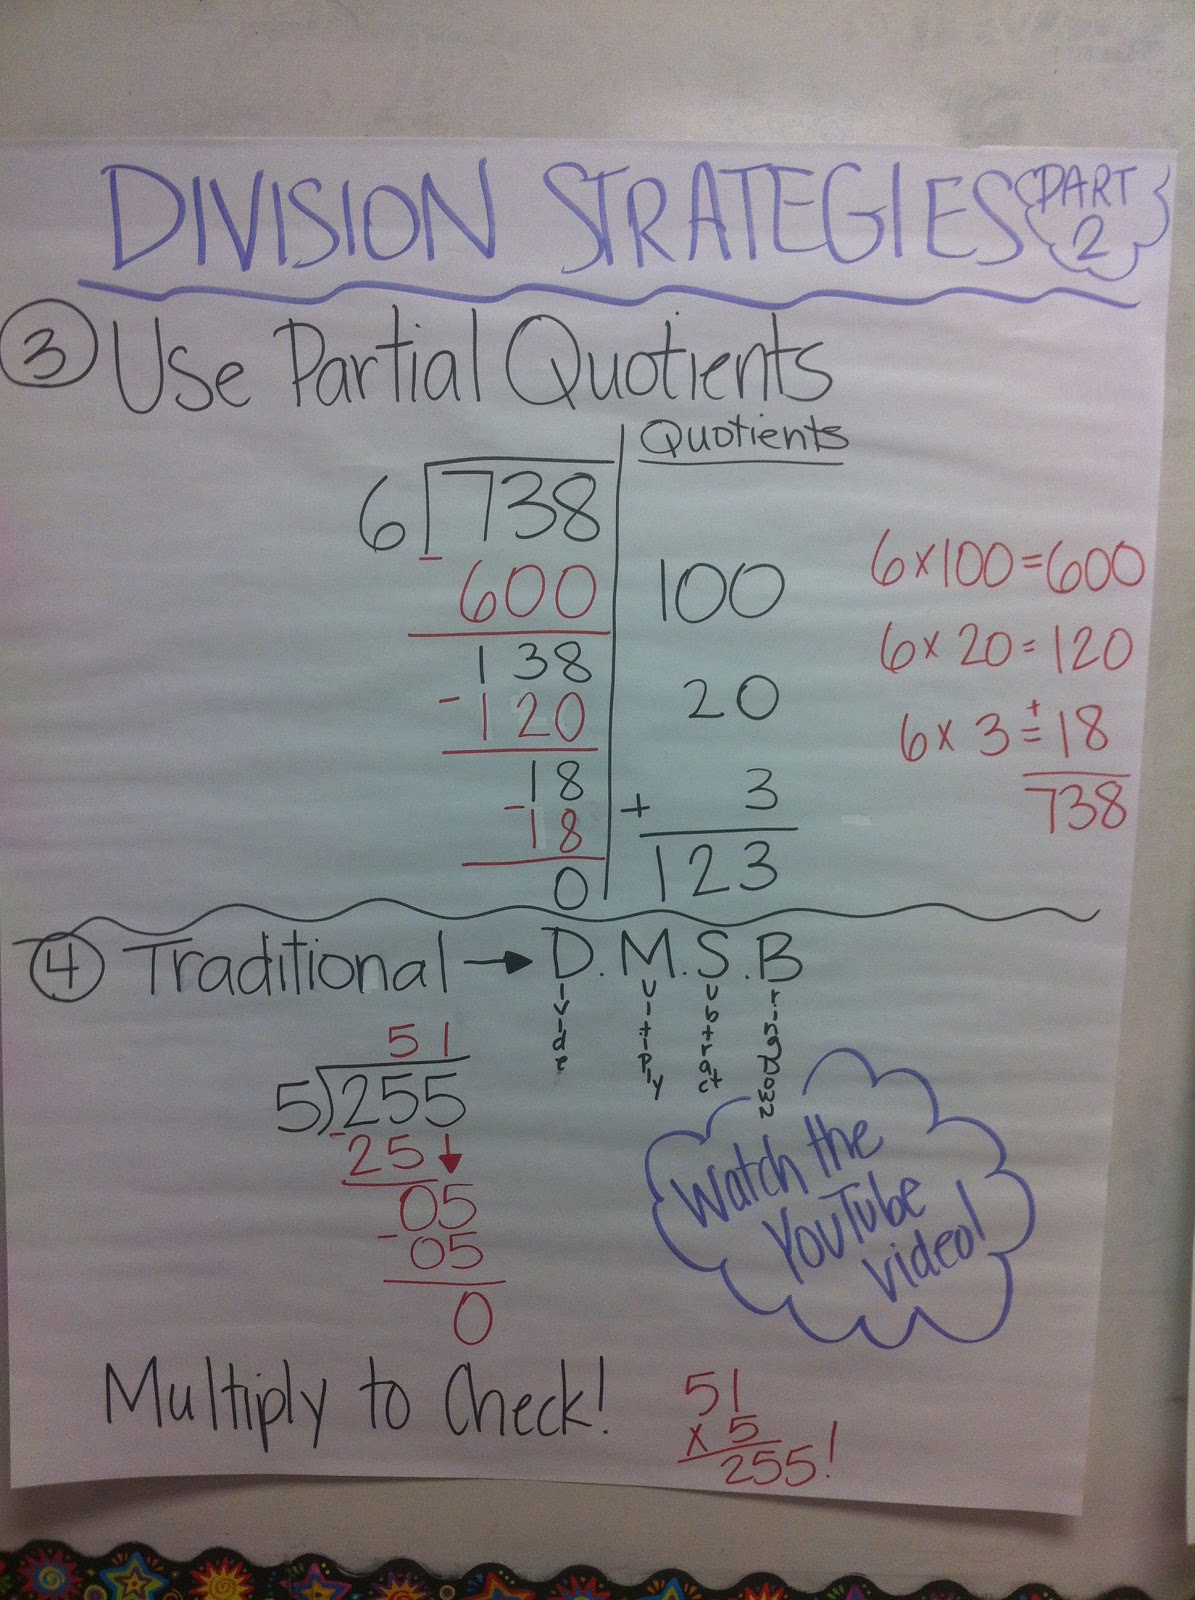 DIVISION STRATEGIES PART 2
③ Use Partial Quotients
Quotients
6 738
- 600 100 6×100=600
138
- 120 20 6×20=120
18
- 18 + 3 6×3=+18
0 123 738
④ Traditional → D.M.S.B
Divide
Multiply
Subtract
51
5 255
- 25 ↓
05
- 05
0
Watch the
YouTube
video!
Multiply to Check!
51
× 5
255!